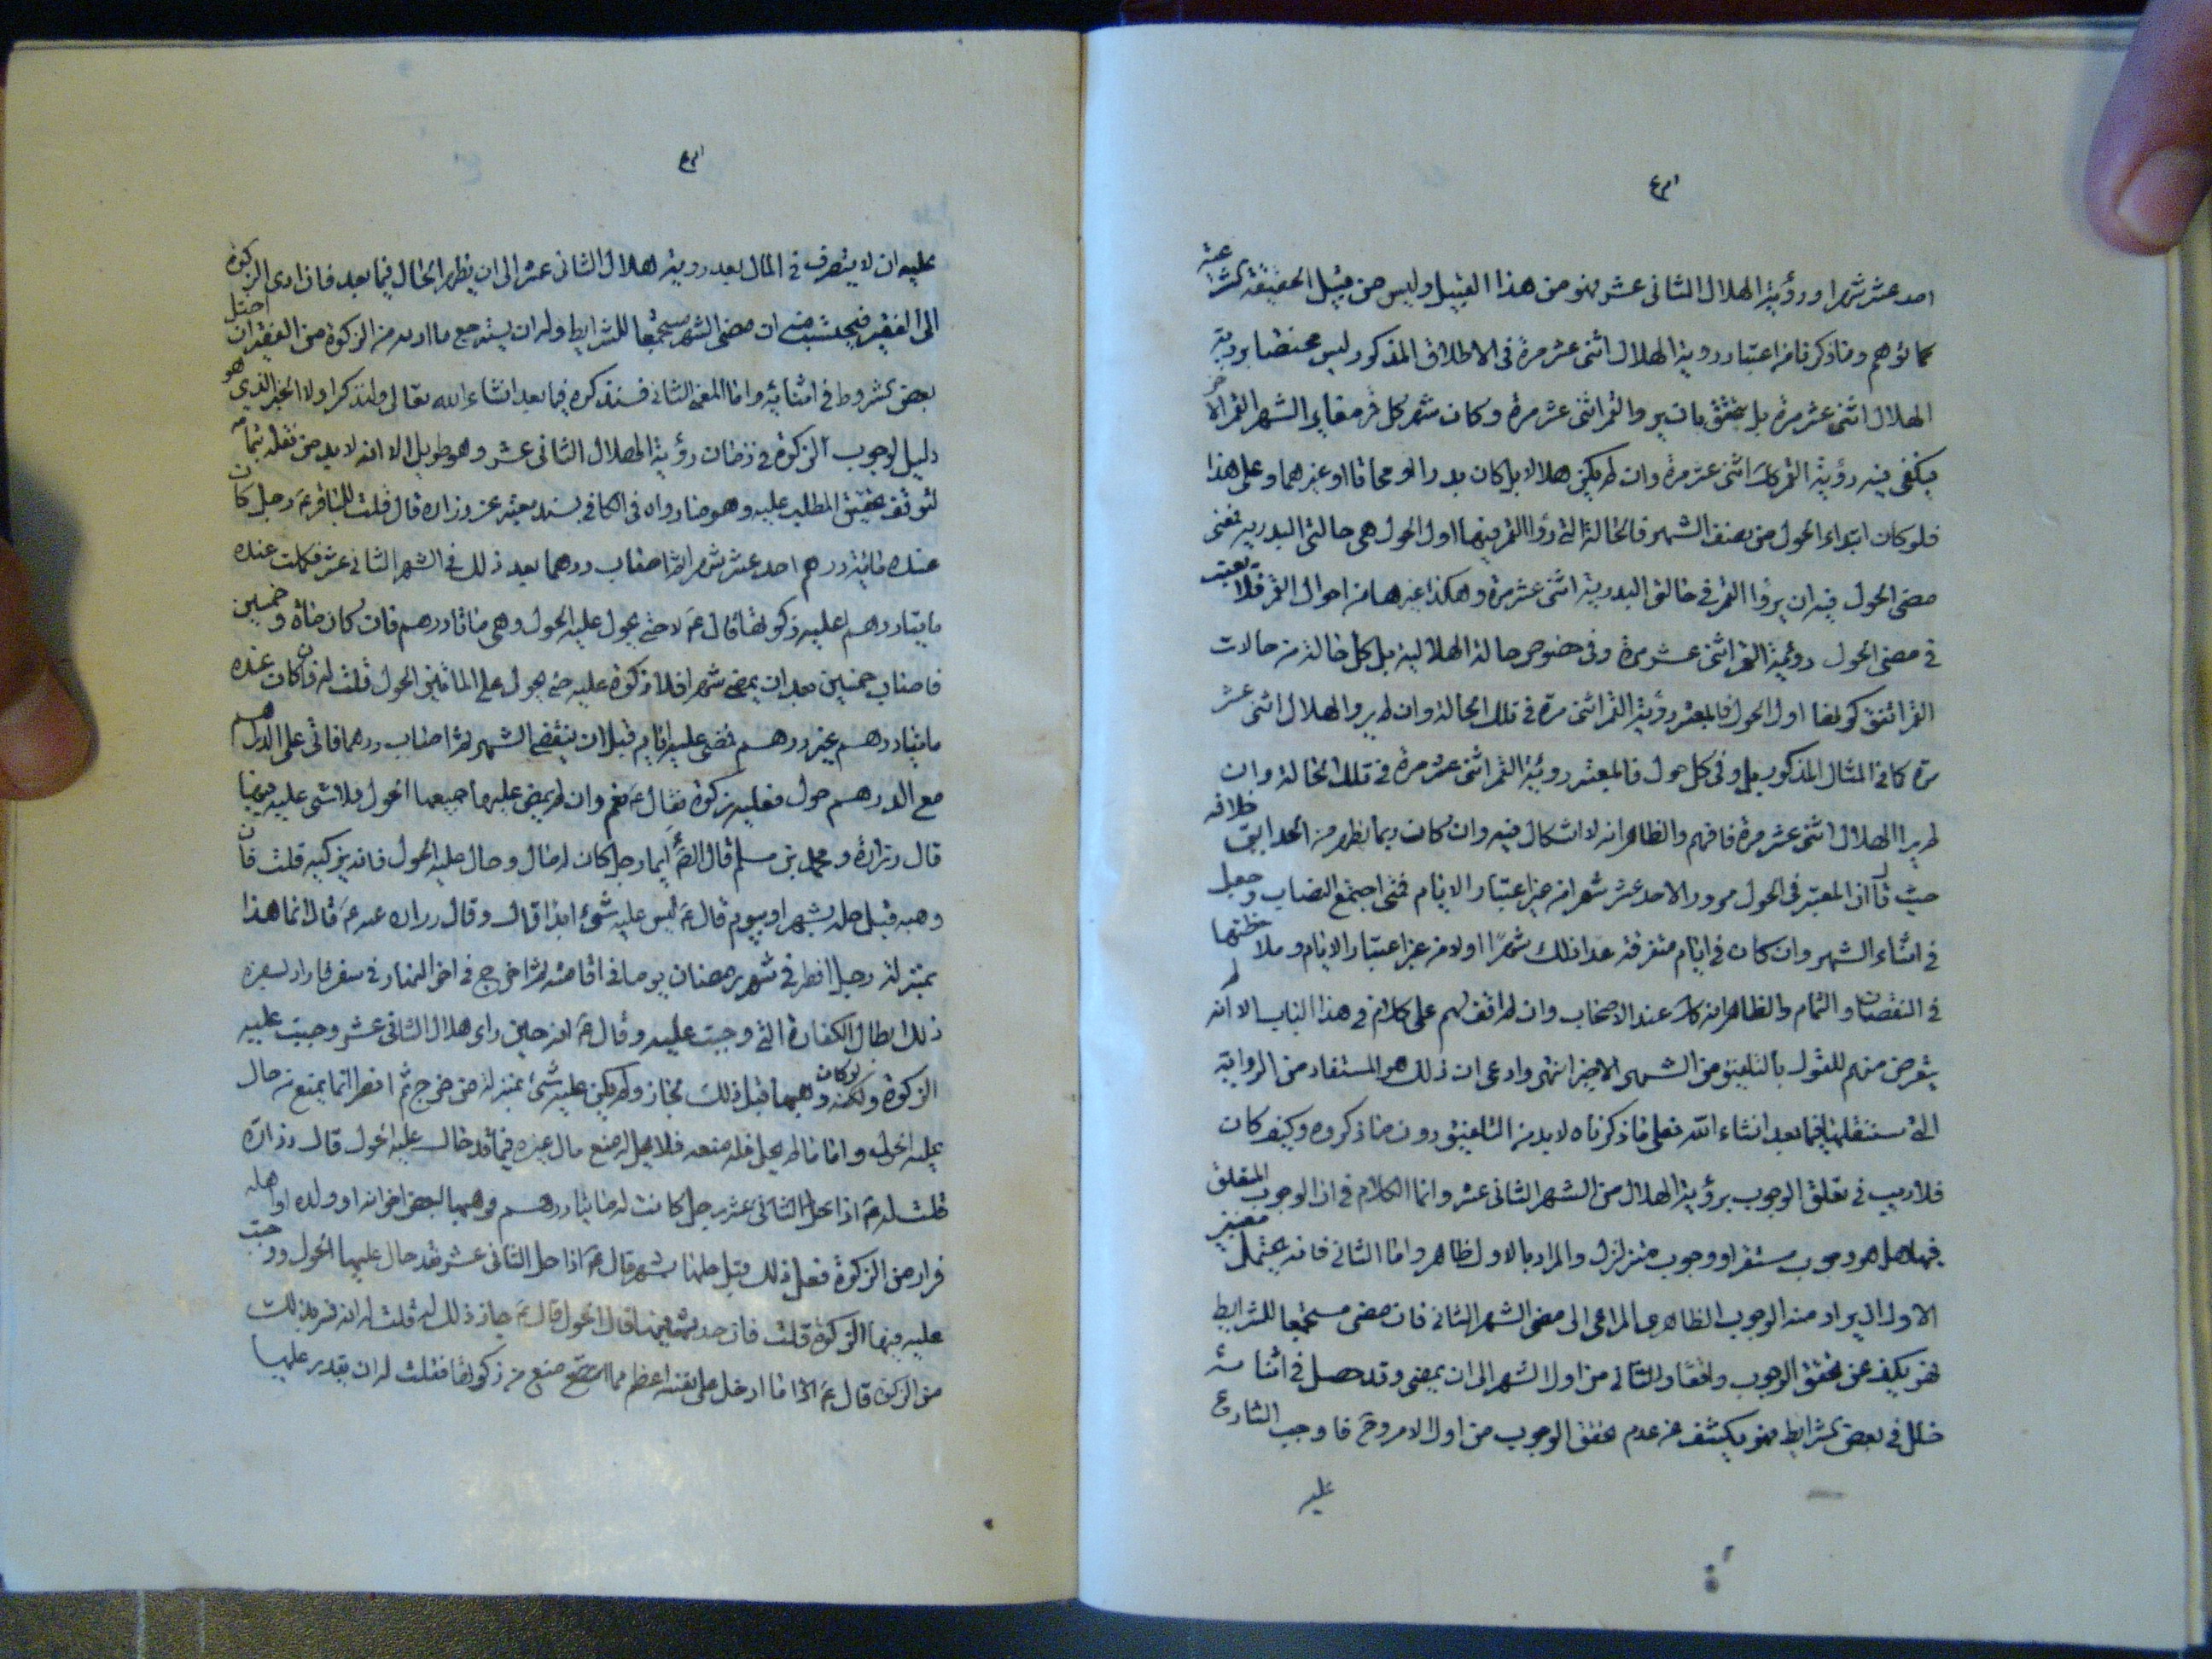 احد عشر شهرا ورؤية الهلال الثانى عشر فهو من هذا القبيل وليس من قبيل الحقيقة
كما توهم وما ذكرنا من اعتبار روية الهلال اثنى عشر مرة فى الاطلاق المذكور ليس مختصا بروية
الهلال اثنى عشر مرة بل يتحقق بان يروا القمر اثنى عشر مرة وكان شهر كل
فيكفى فيه رؤية القمر اثنى عشر مرة وان لم يكن هلالا بل كان بدرا او محاقا او غيرهما وعلى هذا
فلو كان ابتداء الحول من نصف الشهر فالحالة التى رؤا القمر فيها اول الحول هى حالتى البدرية فمعنى
مضى الحول فيه ان يروا القمر فى حالتى البدرية اثنى عشر مرة وهكذا غيرها من احوال القمر فلا يعتبر
فى مضى الحول روئية القمر اثنى عشر مرة وفى خصوص حالة الهلالية بل كل حالة من حالات
القمر اتفق كونها اول الحول فالمعتبر رؤية القمر اثنى مرة فى تلك الحالة وان لم يروا الهلال اثنى عشر
مرة كما فى المثال المذكور بل وفى كل حول فالمعتبر روية القمر اثنى عشر مرة فى تلك الحالة وان
لم يرا الهلال اثنى عشر مرة فافهم والظاهر انه لا اشكال فيه وان كان ربما يظهر من الحدايق خلافه
حيث قال ان المعتبر فى الحول مرور الاحد عشر شهرا من غير اعتبار الايام فمتى اجتمع النصاب وجعل
فى اثناء الشهر وان كان فى ايام متفرقة عد ذلك شهرًا اولا من غير اعتبار الايام وملاحظتها
فى النقصان والتمام والظاهر انه كك عند الاصحاب وان لم اقف لهم على كلام فى هذا الباب الا انه لم
يتعرض منهم للقول بالتلفيق من الشهر الاخير انتهى وادعى ان ذلك هو المستفاد من الرواية
التى سننقلها فيما بعد انشاء الله فعلى ما ذكرناه لابد من التلفيق دون ما ذكروه وكيف كان
فلا ريب فى تعلق الوجوب برؤية الهلال من الشهر الثانى عشر وانما الكلام فى ان الوجوب المتعلق
فيها هل هو وجوب مستقر او وجوب متزلزل والمراد بالاول ظاهر واما الثانى فانه يحتمل معنيين
الاول ان يراد منه الوجوب الظاهرى المراعى الى مضى الشهر الثانى فان مضى مستجمعا للشرايط
فهو يكشف عن تحقق الوجوب واقعا من اول الشهر الى ان يمضى وقد حصل فى اثنائه
خلل فى بعض الشرايط فهو يكشف عن عدم تحقق الوجوب من اول الامر وح فاوجب الشارع
عليه
عليه ان لا يتصرف فى المال بعد روية هلال الثانى عشر الى ان يظهر الحال فيما بعد فان ادى الزكوة
الى الفقير فيحتسب منه ان مضى الشهر مستجمعا للشرايط وله ان يسترجع ما اداه من الزكوة من الفقير ان اختل
بعض الشروط فى اثنائه واما المعنى الثانى فسنذكره فيما بعد انشاء الله تعالى ولنذكر اولا الخبر الذى هو
دليل لوجوب الزكوة فى زمان رؤية الهلال الثانى عشر وهو طويل الا انه لابد من نقله بتمامه
لتوقف تحقيق المطلب عليه وهو ما رواه فى الكافى بسند معتبر عن زرارة قال قلت للباقر ع رجل كان
عنده مائتا درهم احد عشر شهرا ثم اصاب درهما بعد ذلك فى الشهر الثانى عشر فكملت عنده
مايتا درهم اعليه زكوتها قال ع لا حتى يحول عليه الحول وهى مائتا درهم فان كان مائة وخمسين
فاصاب خمسين بعد ان يمضى شهر فلا زكوة عليه حتى يحول على المائتين الحول قلت له فان كان عنده
مايتا درهم غير درهم فمضى عليه ايام قبل ان ينقضى الشهر ثم اصاب درهما فاتى على الدراهم
مع الدرهم حول فعليه زكوة فقال ع نعم وان لم يمض عليها جميعها الحول فلا شئ عليه فيها
قال زرارة ومحمد بن مسلم قال الص ع ايما رجل كان له مال وحال عليه الحول فانه يزكيه قلت فان
وهبه قبل حله بشهر او بيوم قال ع ليس عليه شئ ابدا قال وقال زرارة عنه ع قال انما هذا
بمنزلة رجل افطر فى شهر رمضان يوما فى اقامته ثم خرج فى اخر النهار فى سفر فاراد بسفره
ذلك ابطال الكفارة التى وجبت عليه وقال ع انه حين راى هلال الثانى عشر وجبت عليه
الزكوة ولكنه لو كان وهبها قبل ذلك لجاز ولم يكن عليه شئ بمنزلة من خرج ثم افطر انما يمنع من حال
عليه الحول واما ما لم يحل فله منعه فلا يحل له منع مال غيره فيما قد حال عليه الحول قال زرارة
قلت له ع رجل كانت له مايتا درهم فوهبها لبعض اخوانه او ولده او اهله
فرارا من الزكوة فعل ذلك قبل حلها بشهر قال ع اذا حل الثانى عشر فقد حال عليها الحول ووجبت
عليه فيها الزكوة قلت فان احدث فيها قبل الحول قال ع جاز ذلك له قلت انه فر بذلك
من الزكوة قال ع ما ادخل على نفسه اعظم مما منع من زكوتها فقلت له ان يقدر عليها